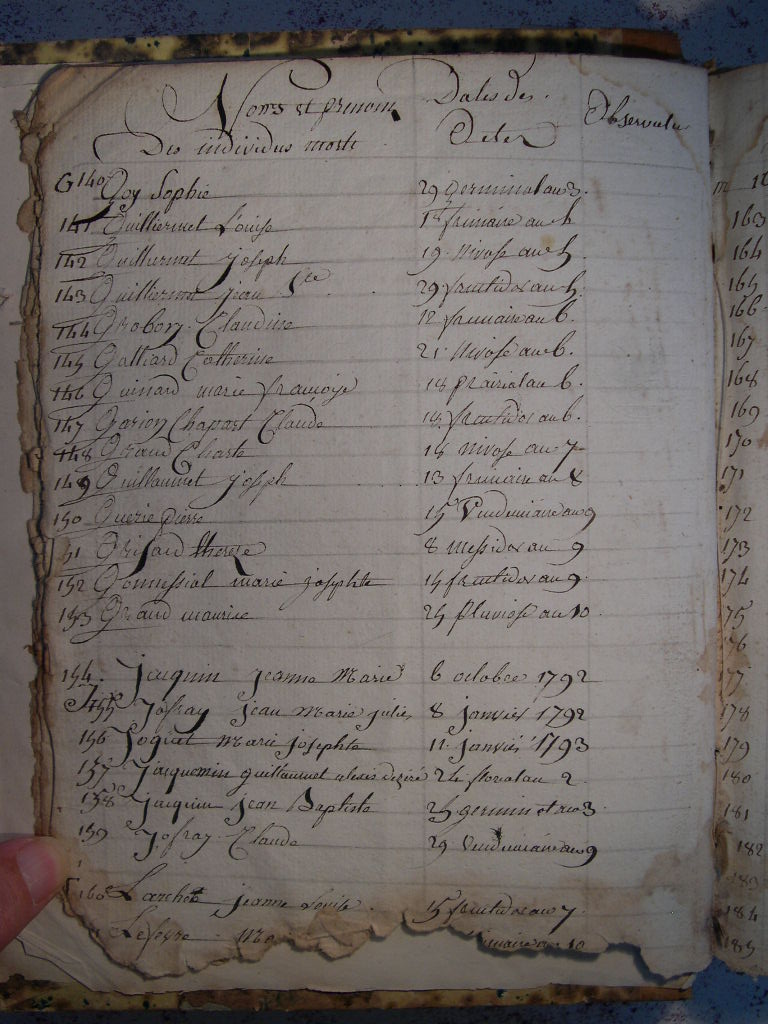 Noms et prenoms Dates des Observatio
Des individus morts Actes
G 140 Goy Sophie 29 Germinal an 3.
141 Guilliermet Louise 1er frimaire an 4
142 Guilliermet joseph 19 Nivose an 5
143 Guilliermet jean 29 fructidor an 5
144 Grobory Claudine 12 frimaire an 6.
145 Galliard Catherine 21 Nivose an 6.
146 Guinard marie francoise 18 prairial an 6.
147 Garion Chapart Claude 18 fructidor an 6.
148 Giraud Charle 18 nivose an 7
149 Guillaumet joseph 13 frimaire an 8
150 Guerie pierre 15 Vendemiaire an 9
51 Grisard therese 8 messidor an 9
152 marie josephte 14 fructidor an 9.
153 Giraud maurise 25 pluviose an 10
154. Jacquin jeanne Marie 6 octobre 1792
J 155 Jofray jean Marie julien 8 janvier 1792
156 Joguet Marie josephte 11 janvier 1793
157 Jacquemin guillaumet alexis deziré 24 floreal an 2
158 jacquin jean Baptiste 25 germinal an 3
159 Jofray Claude 29 Vendemiaire an 9
160 Larchet jeanne Louise 15 fructidor an 7
Lefevre Ma imaire an 10
163
164
165
166
167
168
169
170
171
172
173
174
75
76
77
178
179
180
181
182
183
184
185